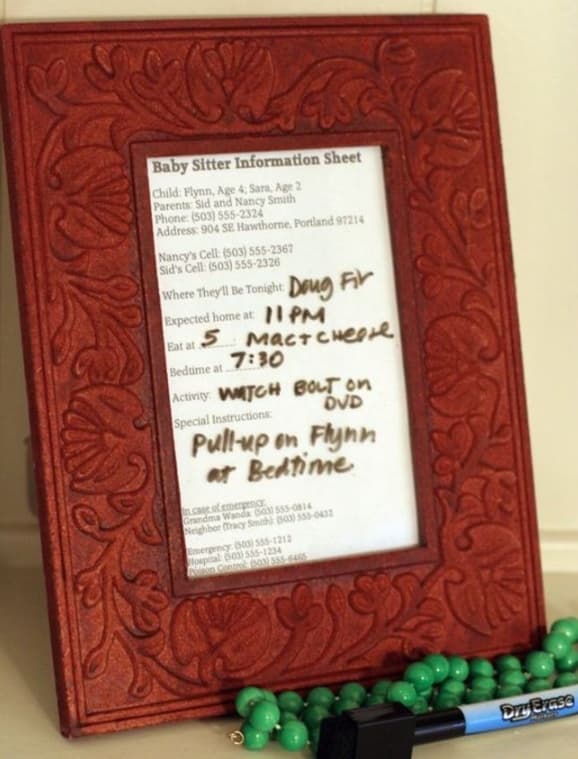 Baby Sitter Information Sheet
Child: Flynn, Age 4; Sara, Age 2
Parents: Sid and Nancy Smith
Phone: (503) 555-2324
Address: 904 SE Hawthorne, Portland 97214
Nancy's Cell: (503) 555-2367
Sid's Cell: (503) 555-2326
Where They'll Be Tonight: Doug Fir
Expected home at: 11 PM
Eat at 5 Mac + cheese
Bedtime at 7:30
Activity: WATCH BOLT on
DVD
Special Instructions:
Pull-up on Flynn
at Bedtime
In case of emergency:
Grandma Wanda: (503) 555-0814
Neighbor (Tracy Smith): (503) 555-0432
Emergency: (503) 555-1212
Hospital: (503) 555-1234
Poison Control: (503) 555-6465
Dry Erase
Markers